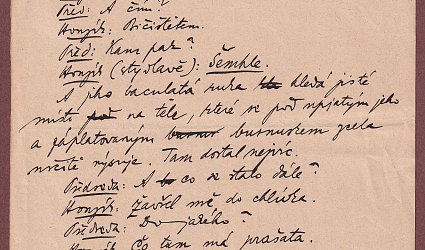 Před: A čím?
Honzík: Bičištětem.
Před: Kam pak?
Honzík (stydlavě): Šemhle.
A jeho baculatá ruka hledá jisté
místo na těle, které se pod napjatým jeho
a záplatovaným burnuskem zcela
určitě rýsuje. Tam dostal nejvíc.
Předseda: A co se stalo dále?
Honzík: Zavřel mě do chlívka.
Předseda: Do jakého?
Honzík: Co tam má prašata.